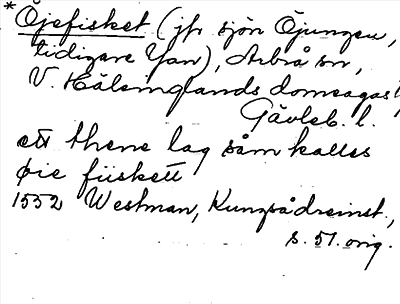 *Öjefisket (jfr sjön Öjungen,
tidigare Yan), Arbrå sn,
V. Hälsinglands domsaga,
Gävleb. l.
ett thene lag såm kalles
öie fiiskett
1552 Westman, Kungsådreinst.,
s. 51. orig.